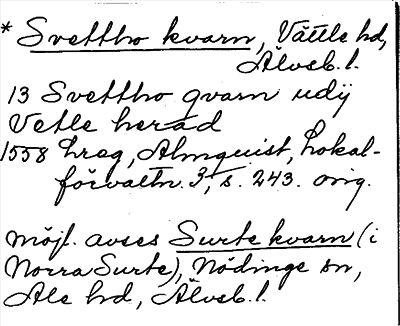 * Svettho kvarn, Vättle hd,
Älvsb. l.
13 Svettho qvarn udij
Vetle herad
1558 hreg, Almquist, Lokal-
förvaltn. 3, s. 243. orig.
möjl. avses Surte kvarn (i
Norra Surte), Nödinge sn,
Ale hd, Älvsb. l.